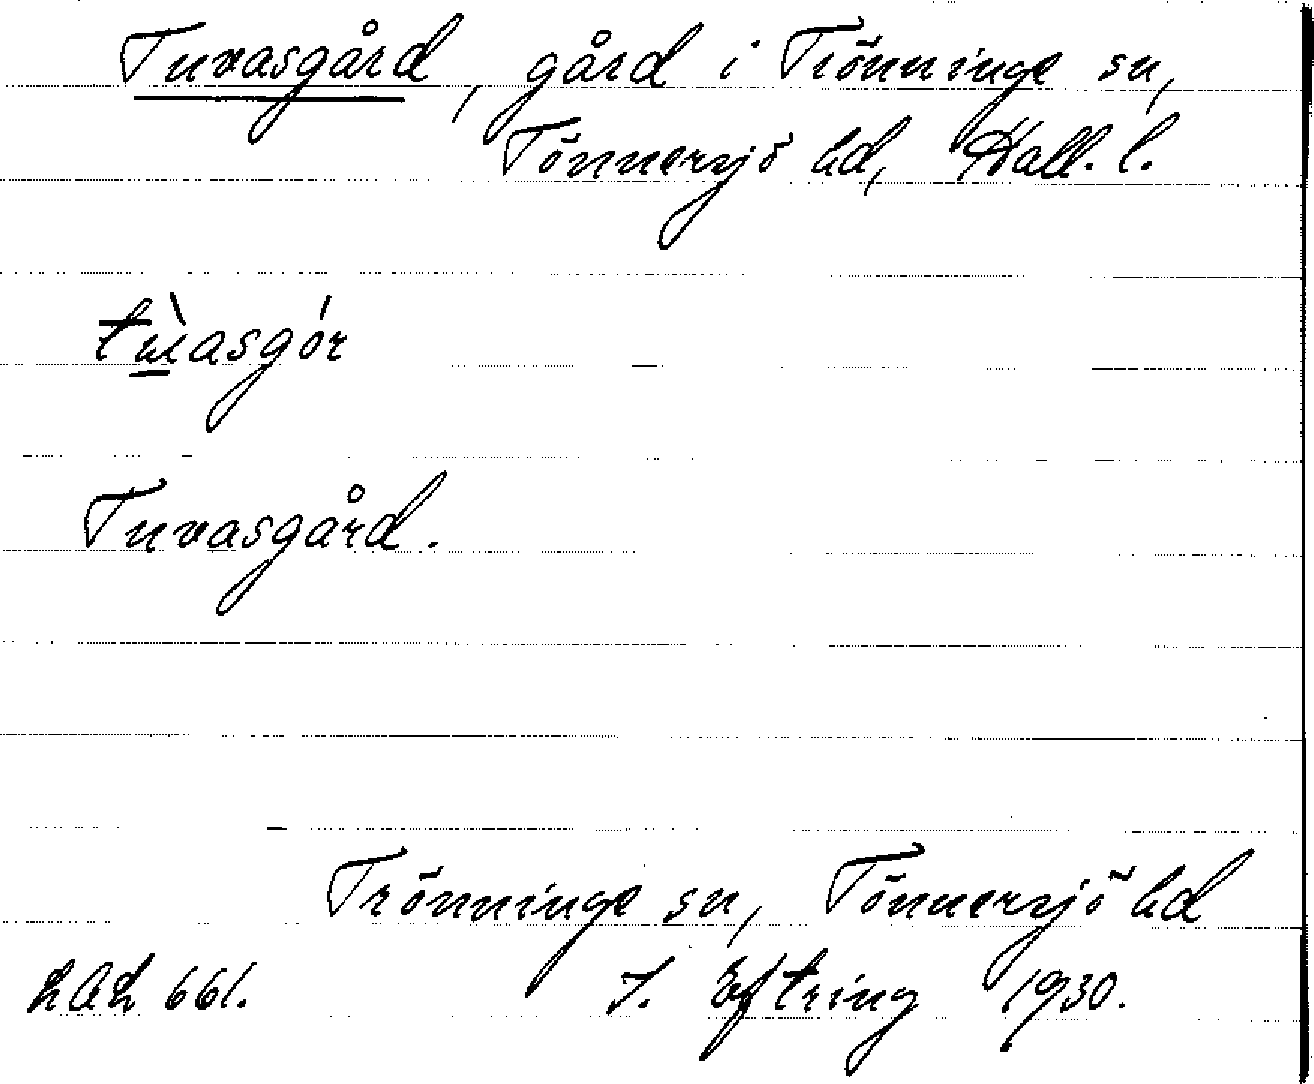 Tuvasgård, gård i Trönninge sn,
Tönnersjö hd, Hall. l.
Tuvasgård.
Trönninge sn, Tönnersjö hd
LAL 661. J. Eftring 1930.